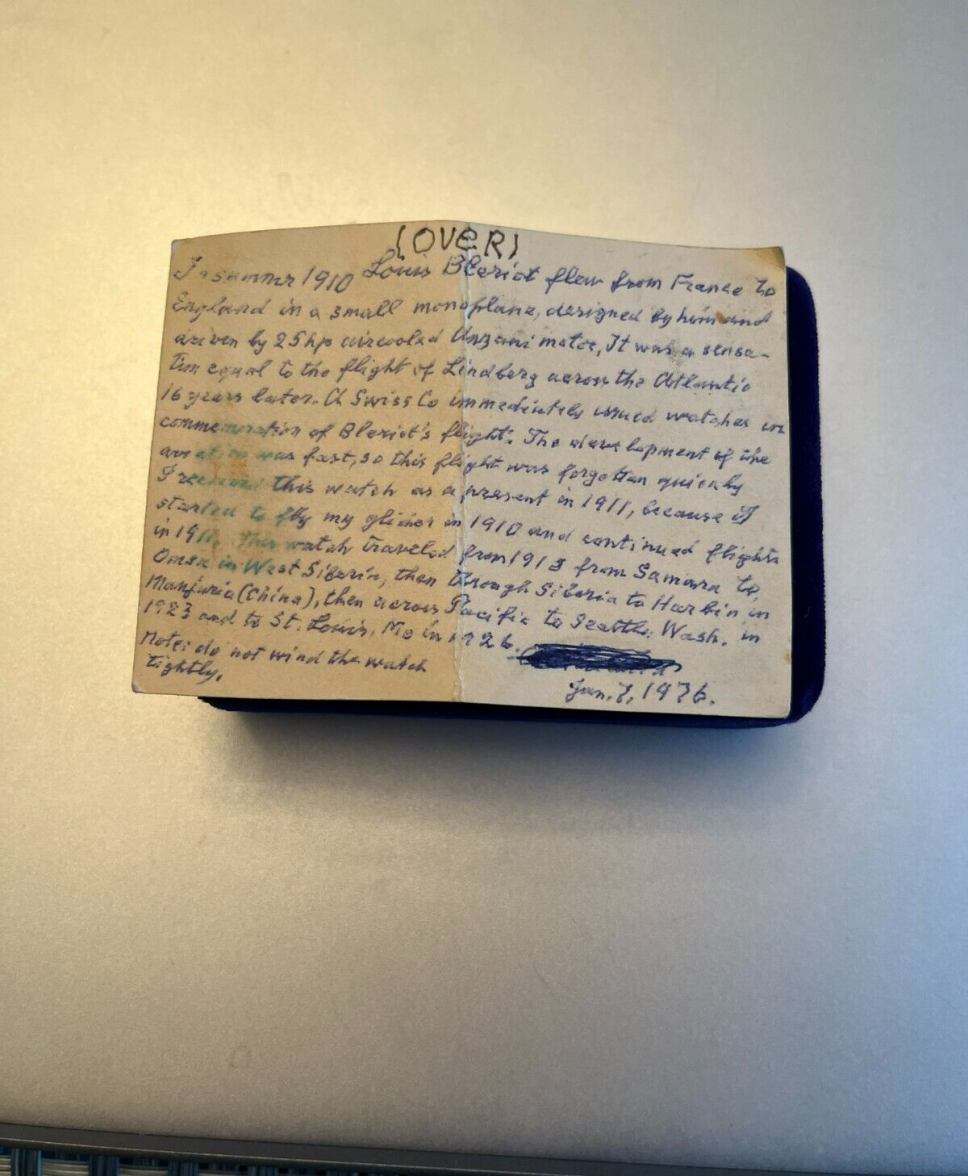 (OVER)
In summer 1910 Louis Bleriot flew from France to
England in a small monoplane, designed by him and
driven by 25hp aircooled Unzani motor, It was a sensa-
tion equal to the flight of Lindberg across the Atlantic
16 years later. A Swiss Co immediately issued watches in
commemoration of Bleriot's flight. The development of the
aviation was fast, so this flight was forgotten quickly
I received this watch as a present in 1911, because I
started to fly my glider in 1910 and continued flights
in 1911. This watch traveled from 1913 from Samara to
Omsk in West Siberia, then through Siberia to Harbin in
Manjuria (China), then across Pacific to Seattle, Wash. in
1923 and to St. Louis, Mo in 1926.
Note: do not wind the watch
tightly.
Jan. 7, 1976.